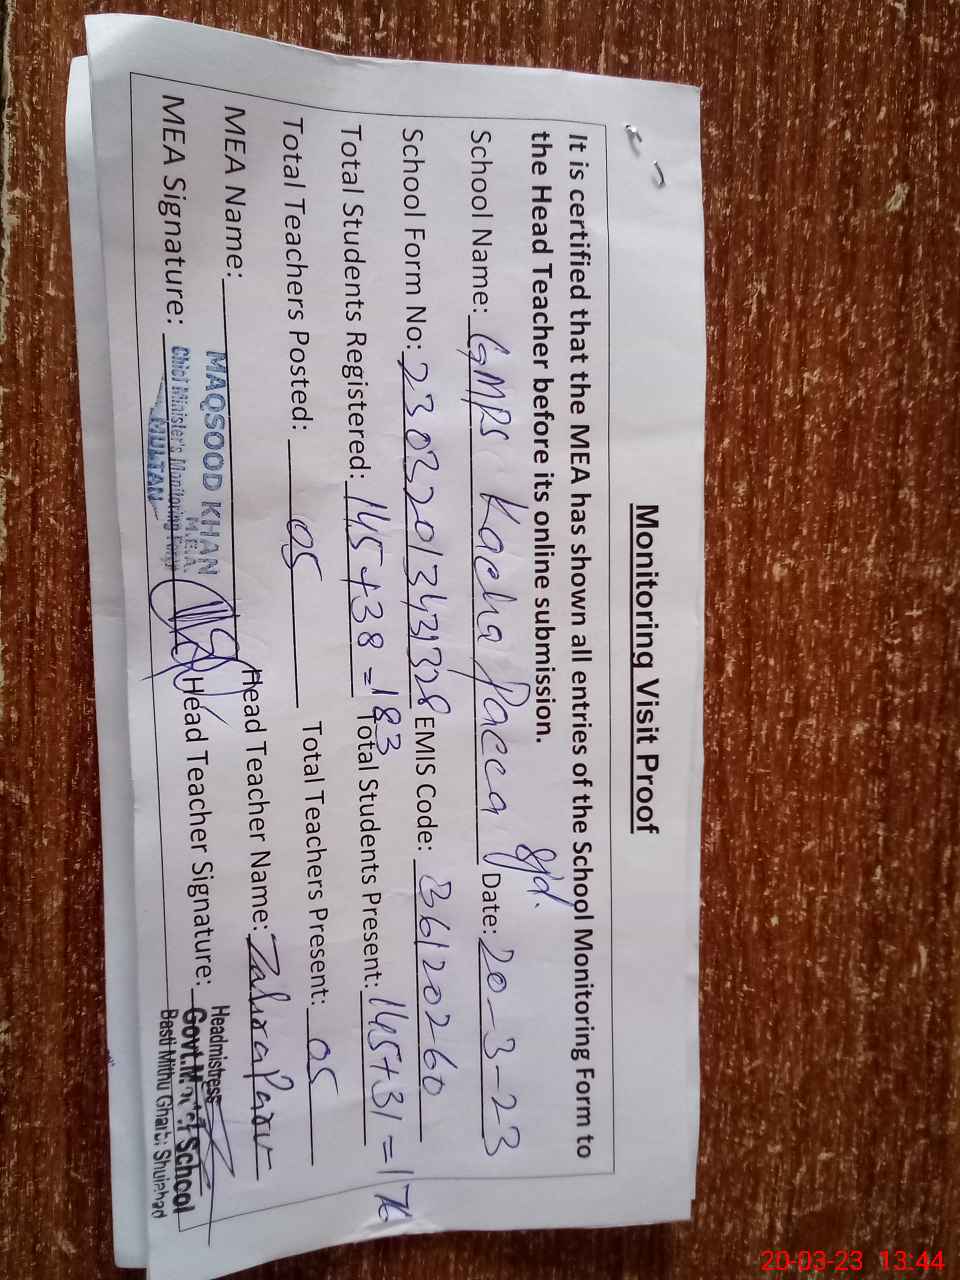 Monitoring Visit Proof
It is certified that the MEA has shown all entries of the School Monitoring Form to
the Head Teacher before its online submission.
School Name: GMPS Kacha Pacca Sjd. Date: 20-3-23
School Form No: 230322013431328 EMIS Code: 36120260
Total Students Registered: 145+38=183 Total Students Present: 145+31=176
Total Teachers Posted: 05 Total Teachers Present: 05
MEA Name: MAQSOOD KHAN Head Teacher Name: Zahora
M.E.A.
MEA Signature: Chief Minister's Monitoring Force Head Teacher Signature: Headmistress
MULTAN Govt. Model School
Basti Mithu Gharbi Shujabad
20-03-23 13:44